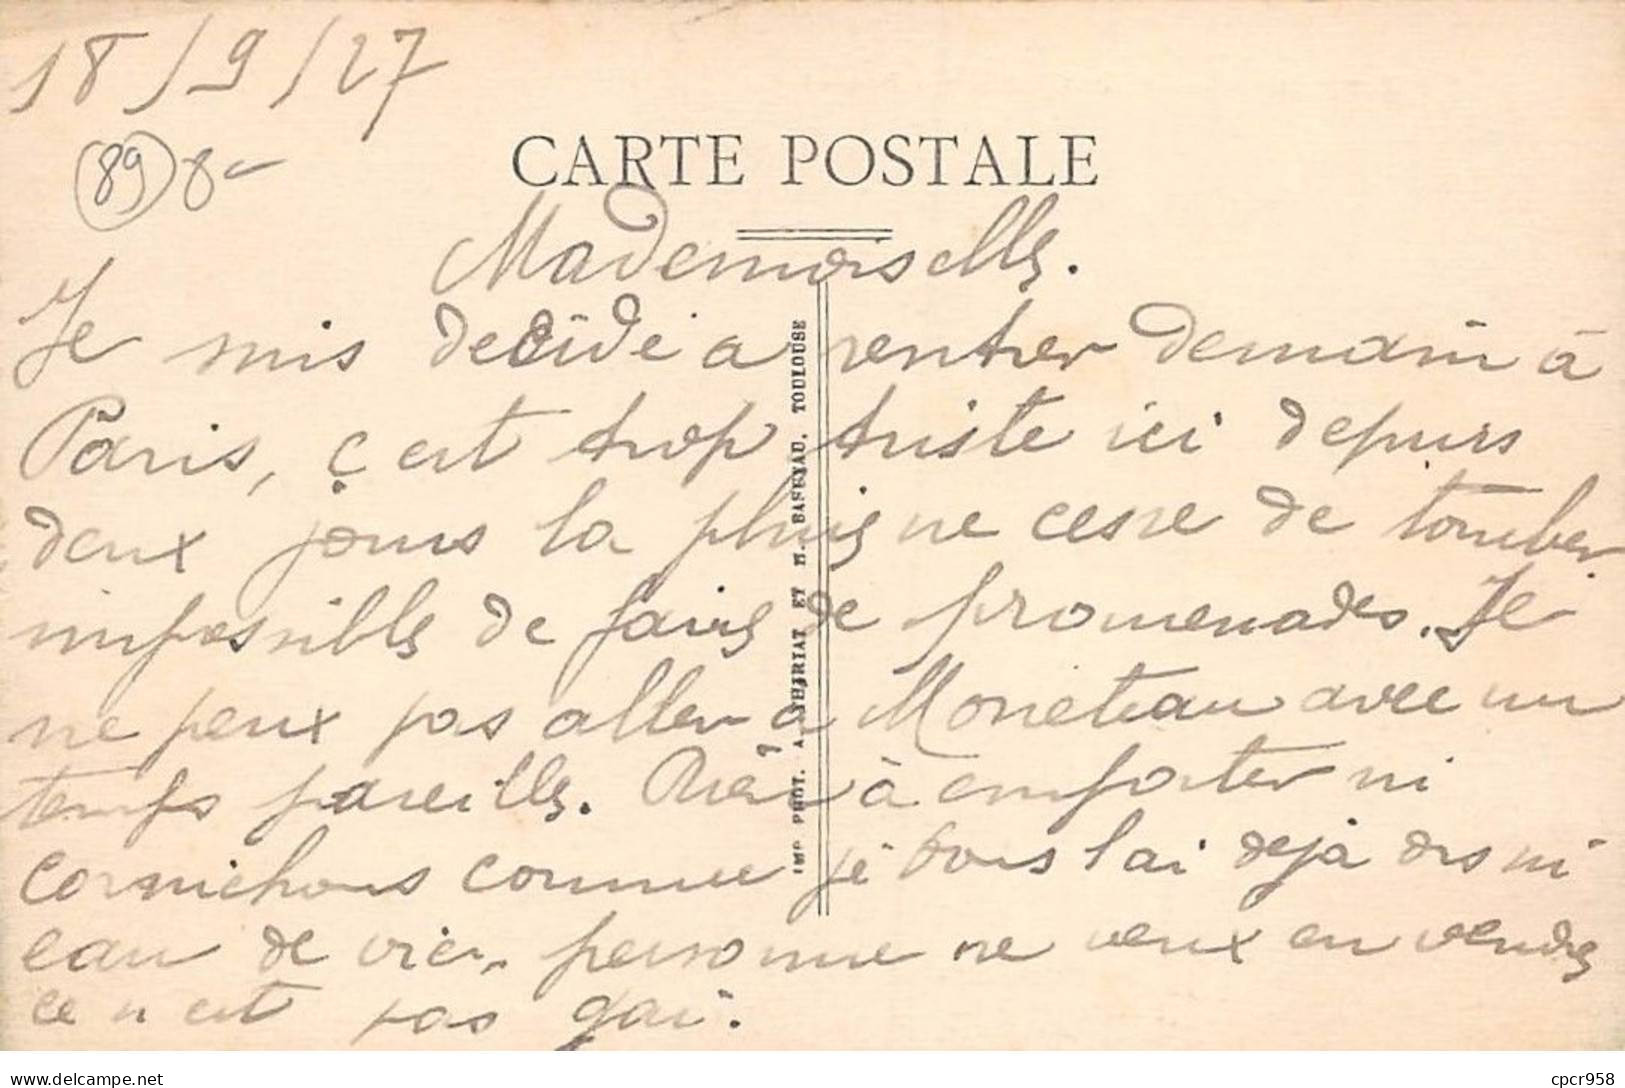 18/9/27
89 8-
CARTE POSTALE
Mademoiselle.
Je mis decidé a rentrer demain à
Paris, ç est trop triste ici depuis
deux jours la pluie ne cesse de tomber
impossible de faire de promenades. Je
ne peux pas aller à Moneteau avec un
temps pareille. Rien à emporter ni
cornichons comme je vous l ai dejà dis ni
eau de vie, personne ne veux en vendre
ce n est pas gai.
IMP. PHOT. A. THIRIAT ET H. BASEYAU, TOULOUSE
delcampe.net
cpcr958